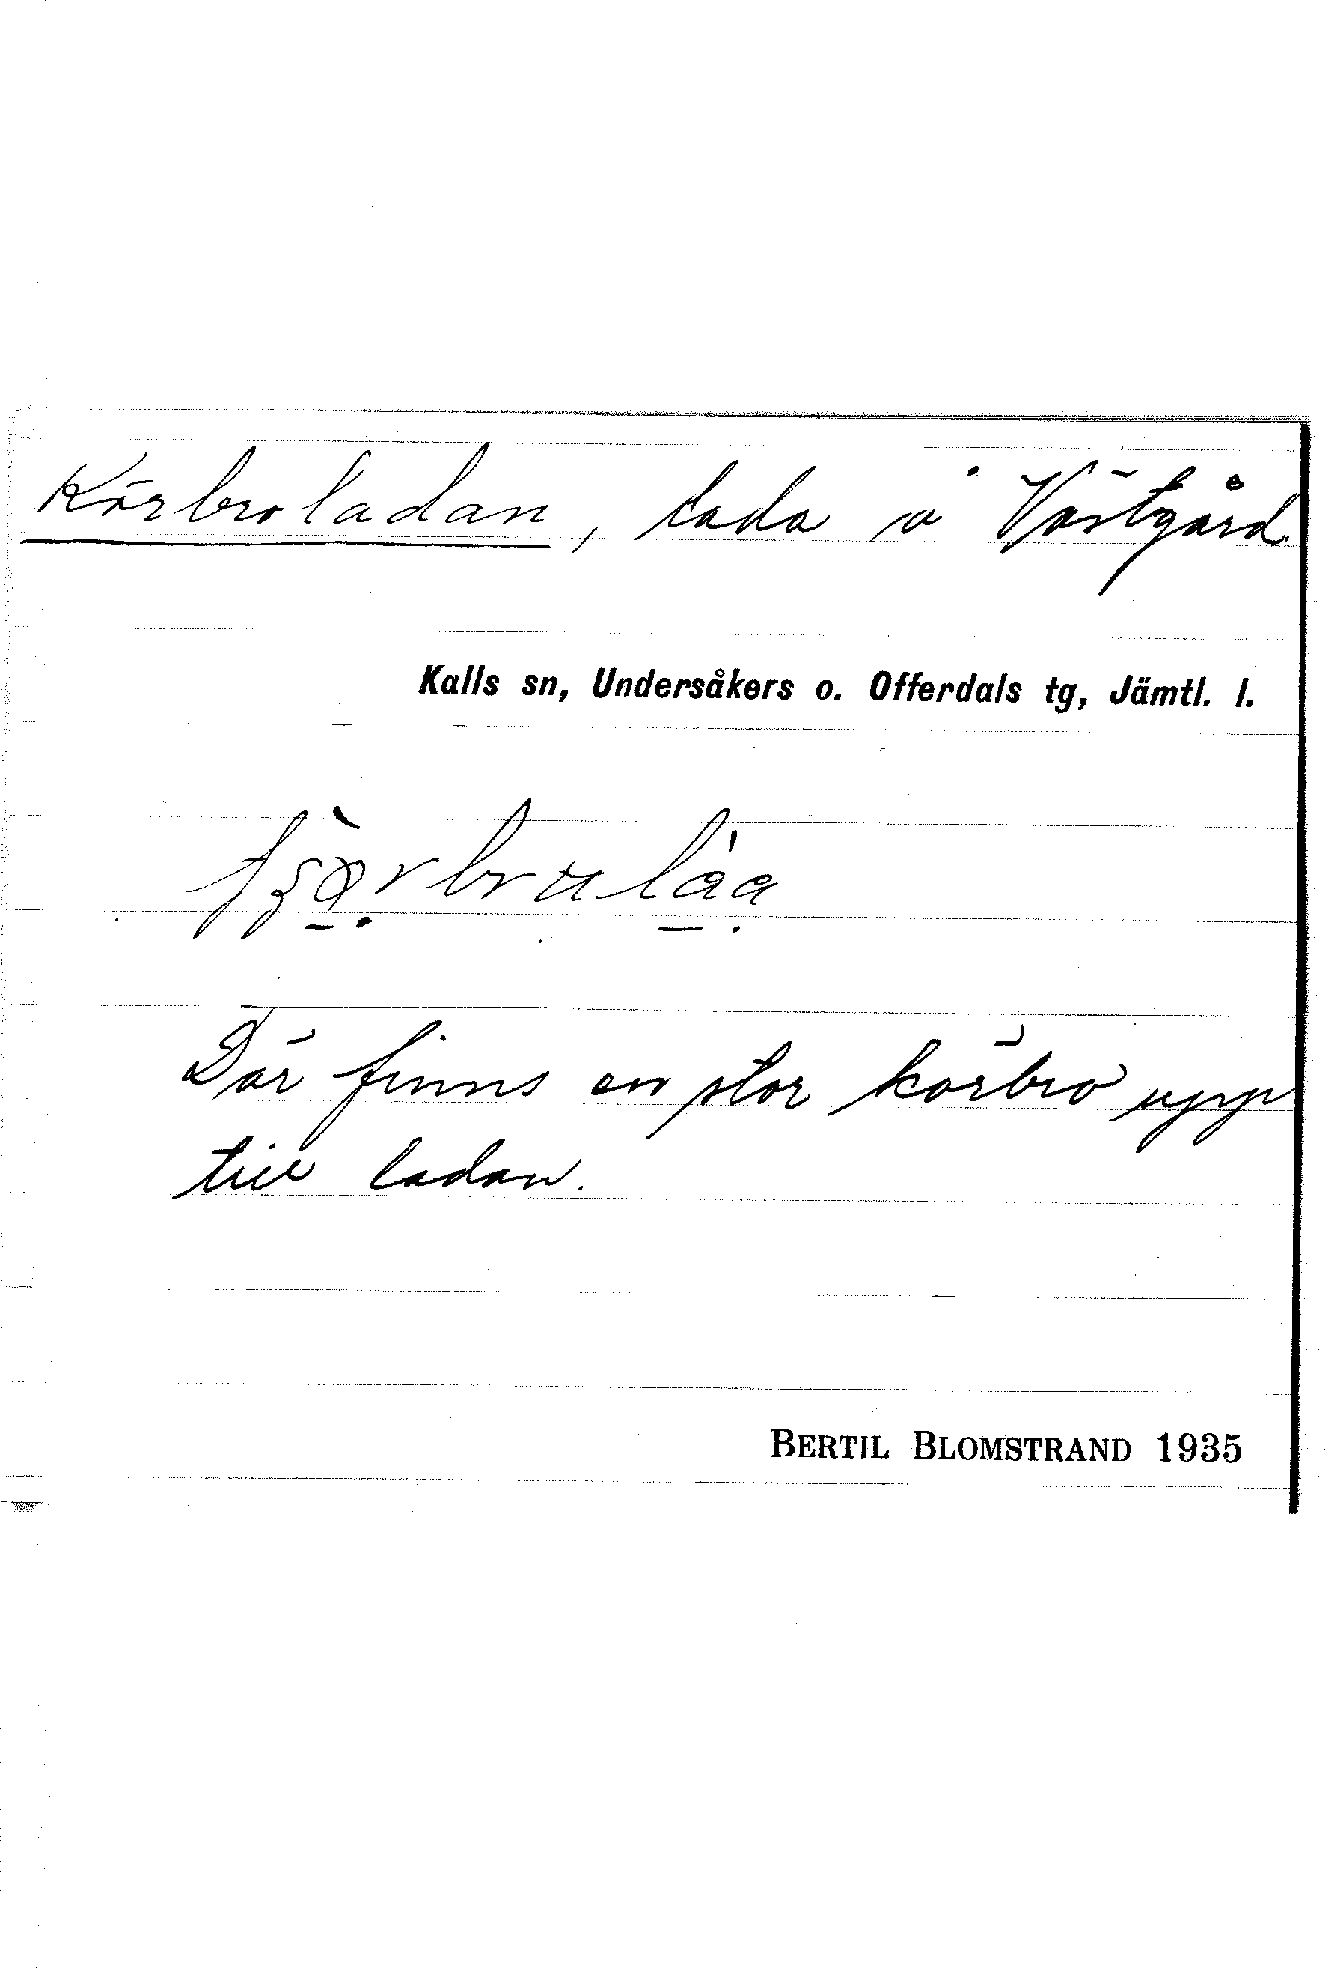 Körbroladan, lada i Västgård
Kalls sn, Undersåkers o. Offerdals tg, Jämtl. l.
Där finns en stor körbro upp
till ladan.
BERTIL BLOMSTRAND 1935